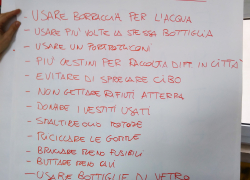 - USARE BORRACCIA PER L'ACQUA
- USARE PIU' VOLTE LA STESSA BOTTIGLIA
- USARE UN PORTAMOZZICONI
- PIU' CESTINI PER RACCOLTA DIFF IN CITTA'
- EVITARE DI SPRECARE CIBO
- NON GETTARE RIFIUTI A TERRA
- DONARE I VESTITI USATI
- SMALTIRE OLIO MOTORE
- RICICLARE LE GOMME
- BRUCIARE MENO FUSIBILI
- BUTTARE MENO
- USARE BOTTIGLIE DI VETRO